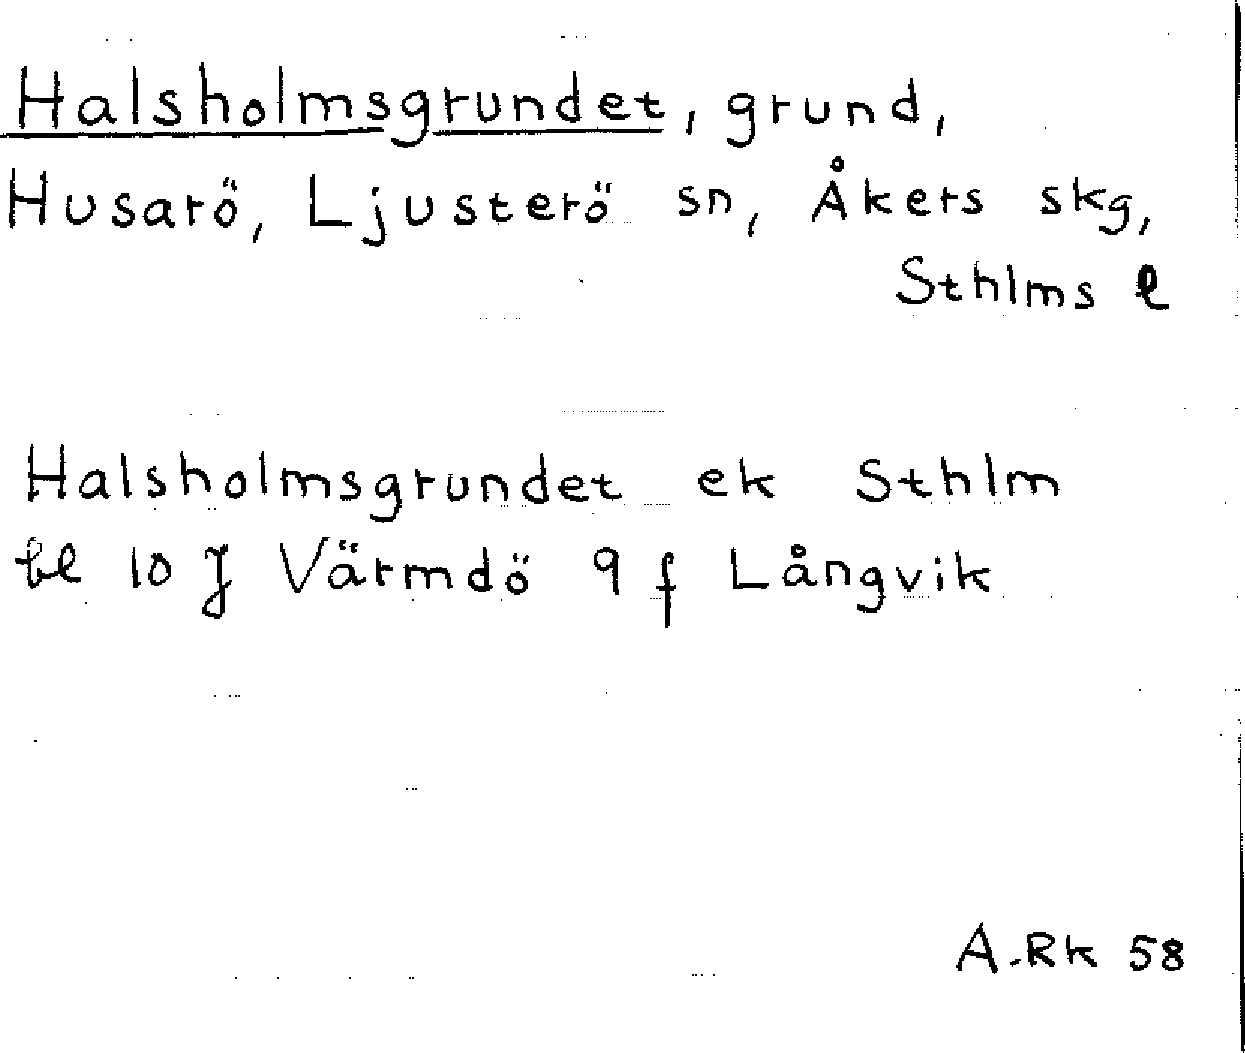 Halsholmsgrundet, grund,
Husarö, Ljusterö sn, Åkers skg,
Sthlms l
Halsholmsgrundet ek Sthlm
bl 10 J Värmdö 9 f Långvik
A.Rk 58